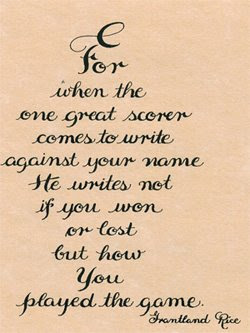 For
when the
one great scorer
comes to write
against your name
He writes not
if you won
or lost
but how
You
played the game.
Grantland Rice